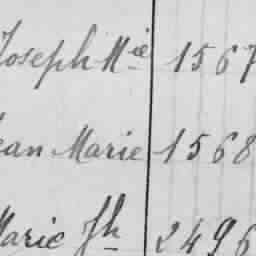 Joseph Mie 1567
Jean Marie 1568
Marie Jh 2496